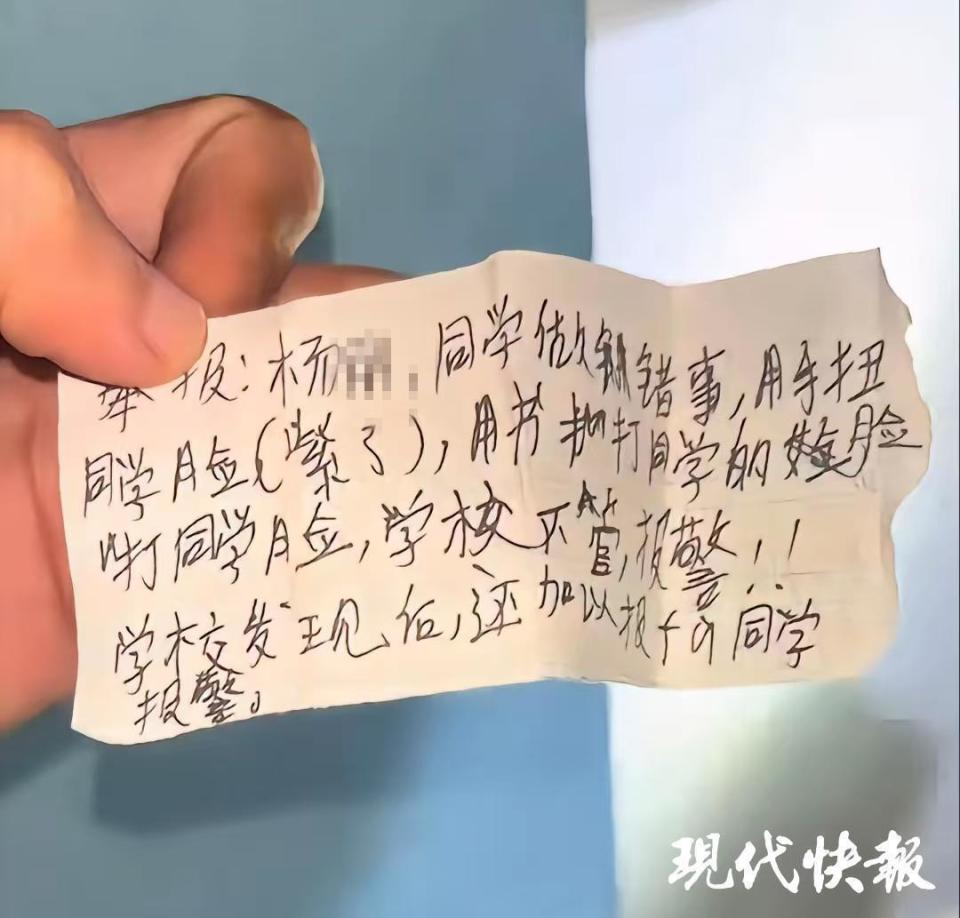 举报:杨 , 同学做错事,用手扭
同学脸(紫了),用书打同学的脸
打同学脸,学校不管,报警!!
学校发现后,还加以报 同学
报警。
現代快報